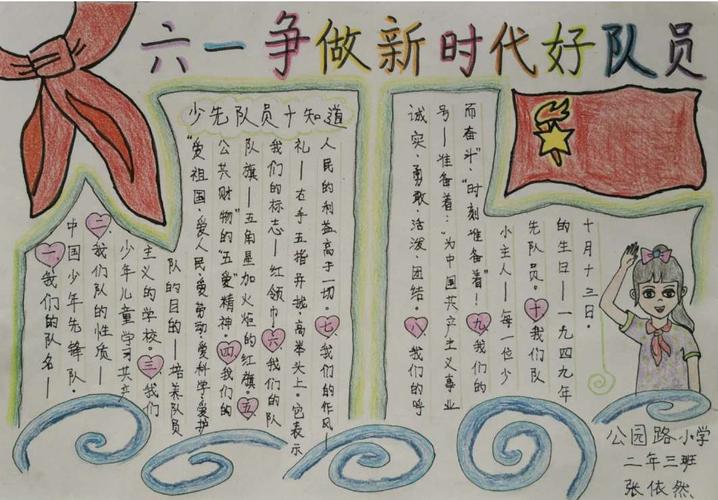 六一争做新时代好队员
少先队员十知道
一、我们的队名—
中国少年先锋队。
二、我们队的性质—
少年儿童学习共产
主义的学校。三、我们
队的目的—培养队员
“爱祖国、爱人民、爱劳动、爱科学、爱护
公共财物的“五爱”精神。四、我们的
队旗—五角星加火炬的红旗。五、
我们的标志—红领巾。六、我们的队
礼—右手五指并拢，高举头上。它表示
人民的利益高于一切。七、我们的作风—
诚实、勇敢、活泼、团结。八、我们的呼
号—准备着：“为中国共产主义事业
而奋斗”，“时刻准备着！”九、我们的
小主人—每一位少
先队员。十、我们队
的生日—一九四九年
十月十三日。
公园路小学
二年三班
张依然